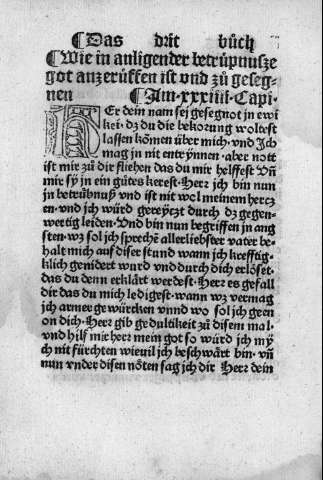 ¶Das drit bůch
¶Wie in anligender betrüpnusze
got anzerüffen ist vnd zů geseg-
nen ¶Am·xxxiiii·Capi·
HEr dein nam sej gesegnot jn ewi
kei· dz du die bekorung woltest
lassen können über mich· vnd Ich
mag jn nit entrynnen· aber nott
ist mir zů dir fliehen das du mir helffest Vn̄
mir sy jn ein gůtes kerest· Herr jch bin nun
jn betrůbnuß vnd ist nit wol meinem hercz
en· vnd jch würd gereyczt durch dz gegen-
wertig leiden· Vnd bin nun begriffen jn ang
sten· wz sol jch sprechē allerliebster vater be-
halt mich auß diser stund wann jch krefftig-
klich genidert wurd vnd durch dich erlöset·
das du denn erklärt werdest· Herr es gefall
dir das du mich ledigest· wann wz vermag
jch armer gewürcken vnnd wo sol jch geen
on dich· Herr gib gedultikeit zů disem mal·
vnd hilf mir herr mein got so würd jch my
ch nit fürchten wieuil jch beschwärt bin· vn̄
nun vnder disen nöten sag jch dir Herr dein